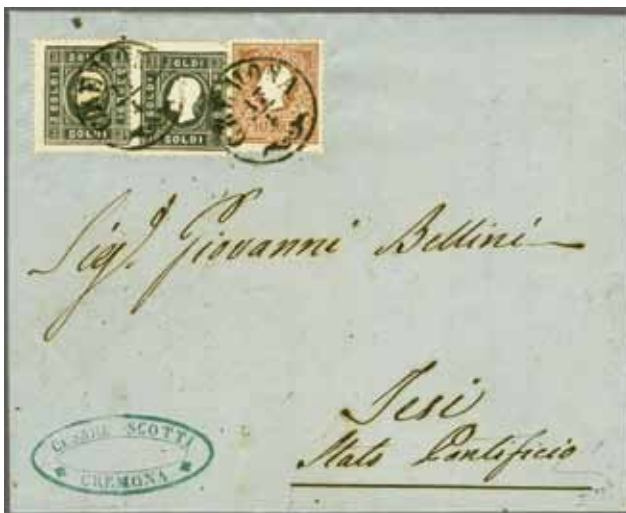 SOLDI SOLDI
SOLDI SOLDI
CREMONA
Sig.r Giovanni Bellini
Jesi
Stato Pontificio
CESARE SCOTTI
CREMONA